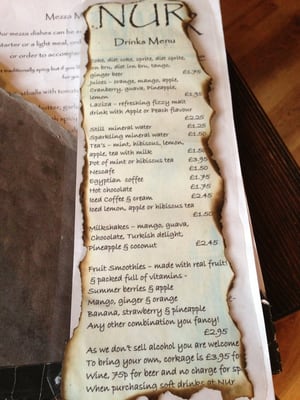 Mezza M
mezza dishes can be
starter or a light meal, or
or order to accom
NUR
Drinks Menu
Coke, diet coke, sprite, diet sprite,
irn bru, diet irn bru, tango,
ginger beer £1.75
Juices - orange, mango, apple,
Cranberry, guava, Pineapple,
lemon £1.95
Laziza - refreshing fizzy malt
drink with Apple or Peach flavour
£2.25
Still mineral water £1.25
Sparkling mineral water £1.50
Tea's - mint, hibiscus, lemon,
apple, tea with milk £1.50
Pot of mint or hibiscus tea £3.95
Nescafe £1.50
Egyptian coffee £1.75
Hot chocolate £1.95
Iced Coffee & cream £2.45
Iced lemon, apple or hibiscus tea
£1.50
Milkshakes - mango, guava,
Chocolate, Turkish delight,
Pineapple & coconut £2.45
Fruit Smoothies - made with real fruit
& packed full of vitamins -
Summer berries & apple
Mango, ginger & orange
Banana, strawberry & pineapple
Any other combination you fancy!
£2.95
As we don't sell alcohol you are welcome
To bring your own, corkage is £3.95 for
Wine, 75p for beer and no charge for sp
When purchasing soft drinks at Nur